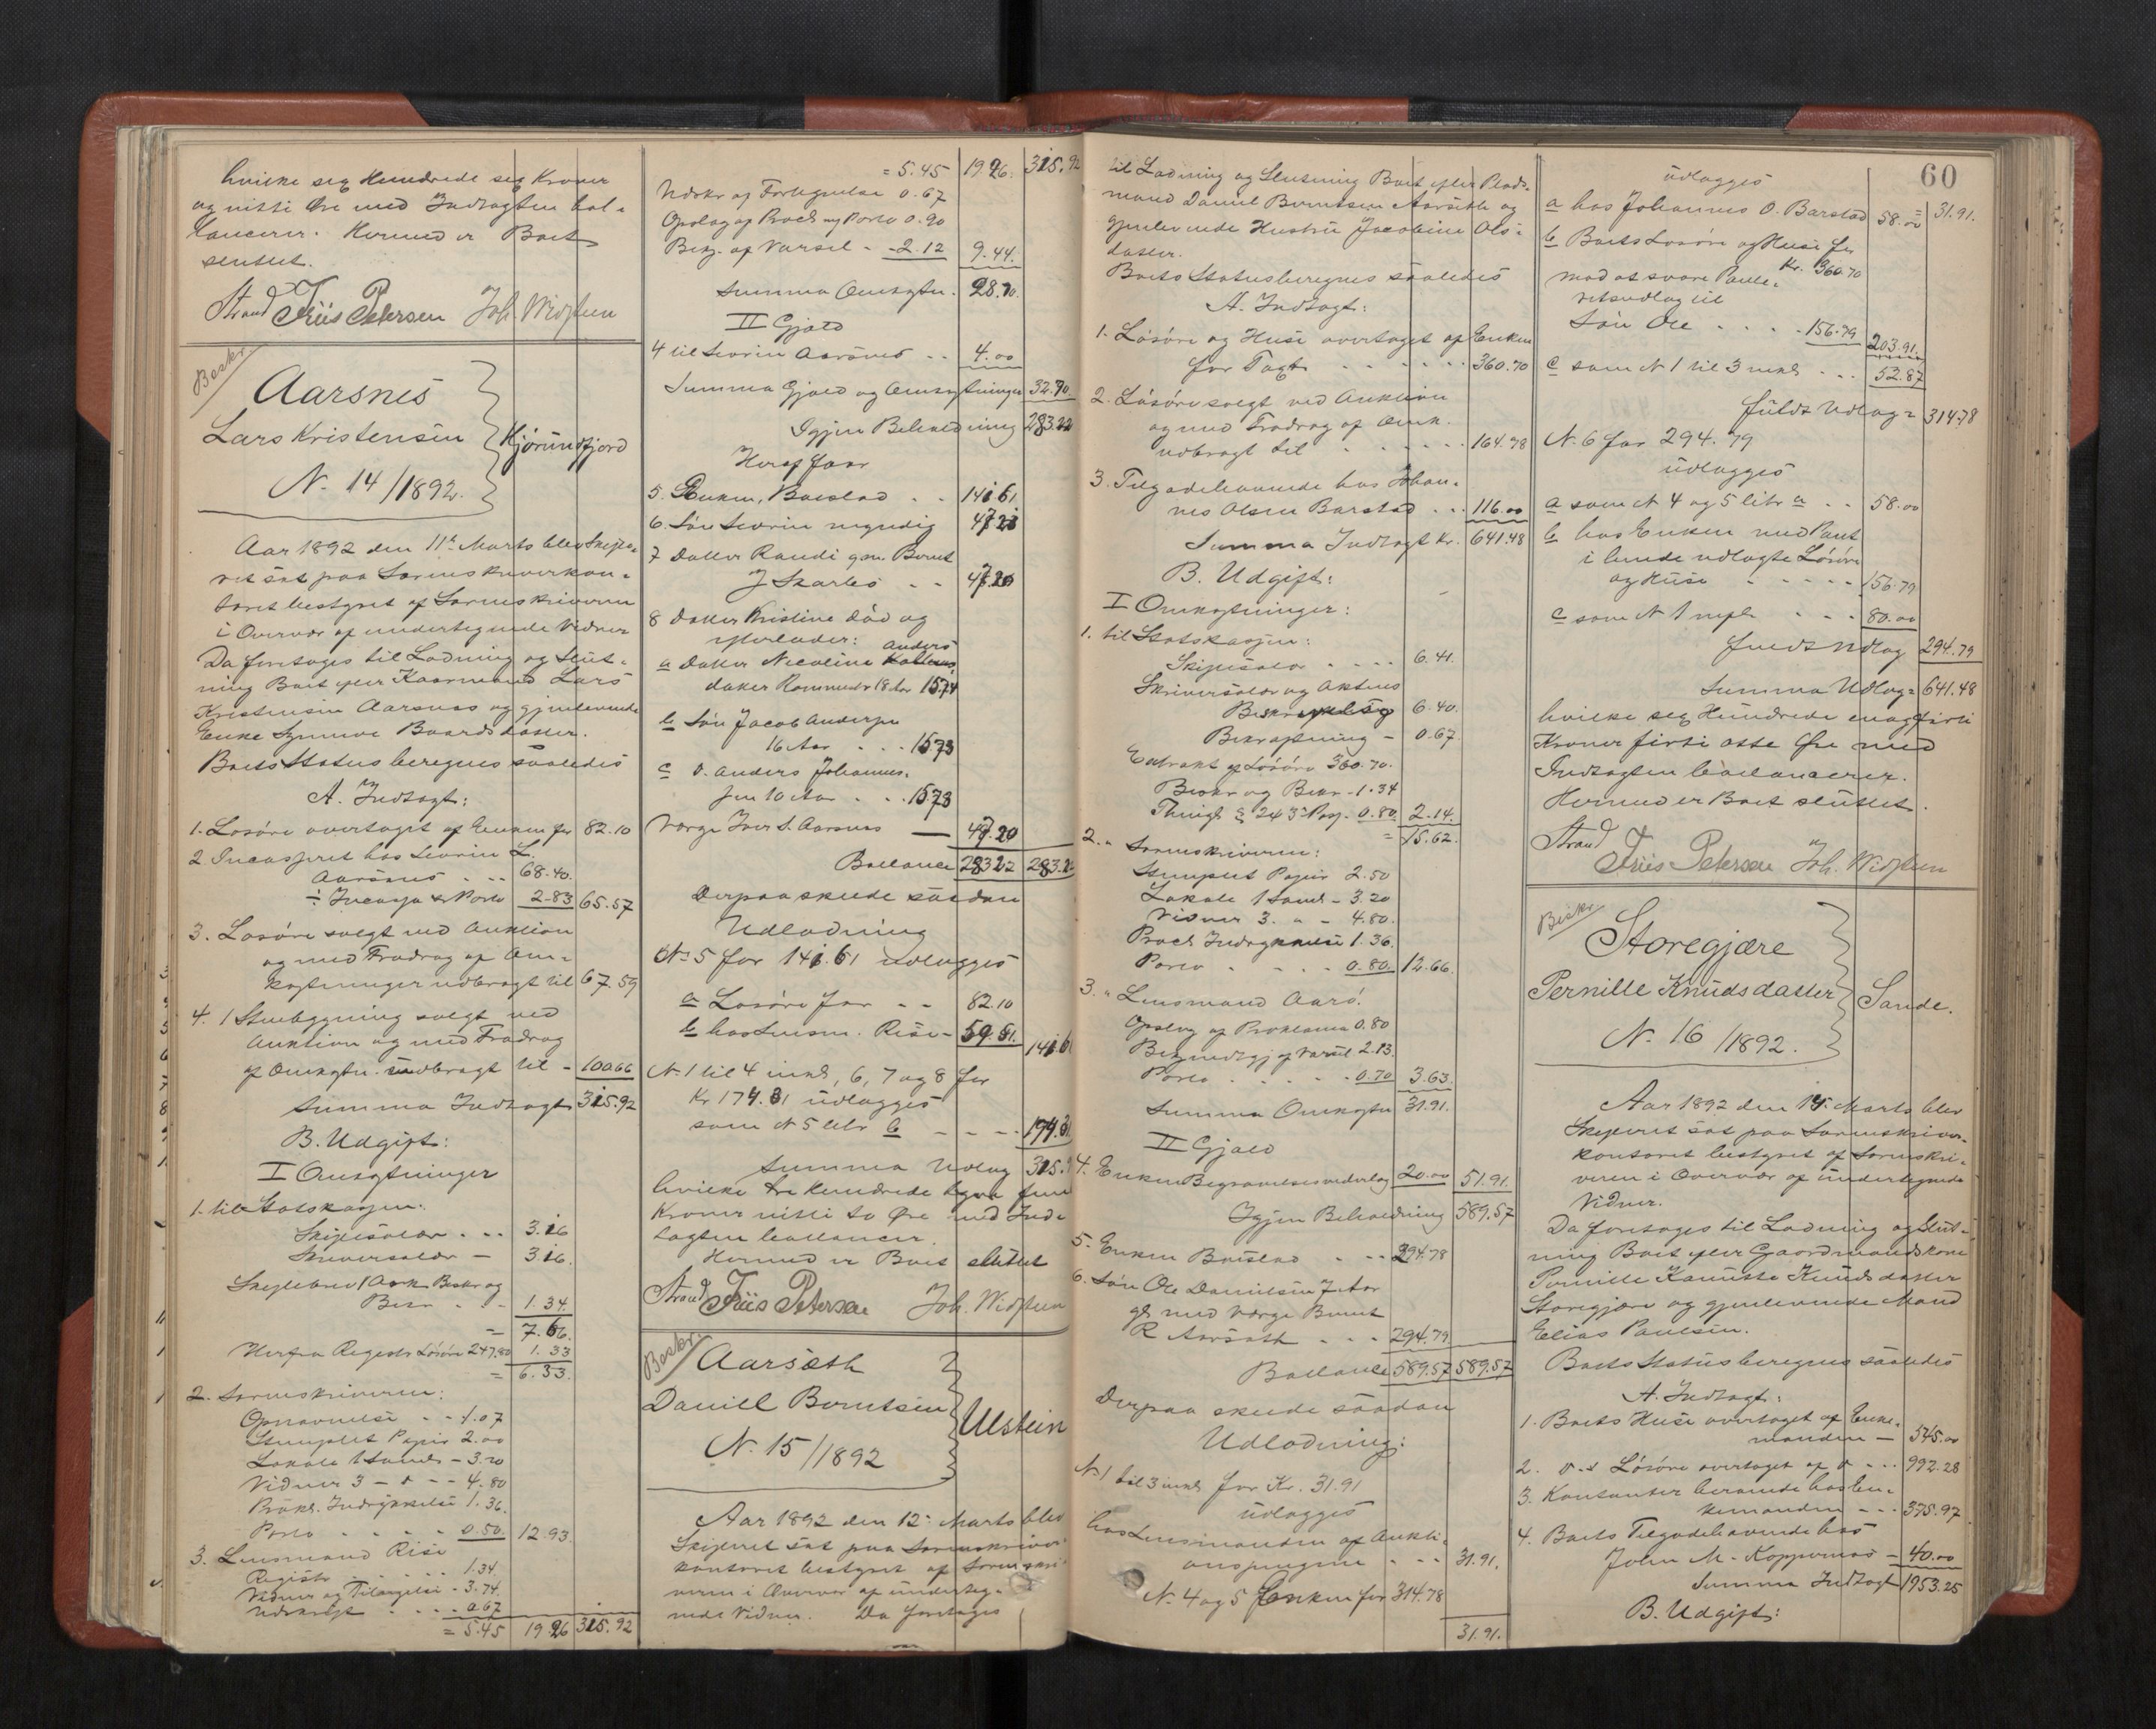 hvilke sex Hundrede sex Kroner
og nitti Øre med Indtægten bal-
lancerer. Hermed er Boet
sluttet.
Strand Friis Petersen Joh. Widsteen
Beskr.
Aarsnes
Lars Kristensen
Kjørundfjord
N. 14/1892.
Aar 1892 den 11te Marts blev Skifte-
ret sat paa Sorenskriverkon-
toret bestyret af Sorenskriveren
i Overvær af undertegnede Vidner
Da foretoges til Lodning og Slut-
ning Boet efter Kaarmand Lars
Kristensen Aarsnes og gjenlevende
Enke Synnøve Baardsdatter.
Boets Status beregnes saaledes
A. Indtægt:
1. Løsøre overtaget af Enken for 82.10
2. Incasseret hos Severin L.
Aarsnes - - 68.40.
÷ Incasso & Porto 2.83 65.57
3. Løsøre solgt ved Auktion
og med Fradrag af Om-
kostninger udbragt til 67.59
4. 1 Stuebygning solgt ved
Auktion og med Fradrag
af Omkostn. udbragt til - 100.66
Summa Indtægt 315.92
B. Udgift:
I Omkostninger
1. til Statskassen:
Skiftesalær - - - 3.16
Skriversalær - 3.16.
Skiftebrev 1 Ark Beskr og
Bekr - - - 1.34.
= 7.66.
Herfra Registr Løsøre 247.80 1.33
= 6.33.
2. Sorenskriveren:
Opnævnelse - - 1.07
Stemplet Papir 2.00
Lokale 1 Saml - 3.20
Vidner 3 - d - - 4.80
Prokl. Indrykkelse 1.36.
Porto - - - - 0.50. 12.93.
3. Lensmand Rise
Registr - - - - 1.34
Vidner og Tilsigelse - 3.74.
Udskrift - - - - 0.67
= 5.45 19.26 315.92
= 5.45 19.26. 315.92
Udskr af Fortegnelse 0.67
Opslag af Procl og Porto 0.90
Bekj. af Varsel - - 2.12 9.44.
Summa Omkostn. 28.70.
II Gjæld
4 til Severin Aarsnes - - 4.00
Summa Gjæld og Omkostninger 32.70
Igjen Beholdning 283.22
Heraf faar
5. Enken, Boeslod - - 141.61.
6. Søn Severin myndig 47.21
7 Datter Randi gm. Bernt
J Skarbø - - 47.20
8 Datter Kristine død og
efterlader:
a Datter Nicoline Anders
datter Rommeds 18 Aar 15.74
b Søn Jacob Andersen
16 Aar - - - 15.73
c d. Anders Johannes-
sen 10 Aar - - - 15.73
Værge Iver S. Aarsnes — 47.20
Ballance 283.22 283.22
Derpaa skede saadan
Udlodning
No 5 for 141.61 udlægges
a Løsøre for - - 82.10
b hos Lensm. Rise - 59.51.
141.61
N. 1 til 4 incl, 6, 7 og 8 for
Kr 174.31 udlægges
som N 5 litr b - - - - 174.31
Summa Udlæg 315.92
hvilke tre hundrede femten
Kroner nitti to Øre med Ind-
tægten ballancer.
Hermed er Boet sluttet
Strand Friis Petersen Joh. Widsteen
Beskr.
Aarsæth
Daniel Berntsen
Ulstein
N. 15/1892
Aar 1892 den 12te Marts blev
Skifteret sat paa Sorenskriver-
kontoret bestyret af Sorenskri-
veren i Overvær af underteg-
nede Vidner. Da foretoges
60
til Lodning og Slutning Boet efter Plads-
mand Daniel Berntsen Aarsæth og
gjenlevende Hustru Jacobine Ols-
datter.
Boets Status beregnes saaledes
A. Indtægt:
1. Løsøre og Huse overtaget af Enken
for Taxt - - - - - - 360.70
2. Løsøre solgt ved Auktion
og med Fradrag af Omk.
udbragt til - - - - - 164.78
3. Tilgodehavende hos Johan-
nes Olsen Barstad - - - 116.00
Summa Indtægt Kr. 641.48
B. Udgift:
I Omkostninger:
1. til Statskassen:
Skiftesalær - - - - 6.41.
Skriversalær og Aktens
Beskrivelse 6.40.
Bekræftning - 0.67.
Extrakt af Løsøre 360.70.
Beskr og Bekr - 1.34
Thingl § 24 3die Pass. 0.80. 2.14.
= 15.62.
2. " Sorenskriveren:
Stemplet Papir 2.50
Lokale 1 Saml - 3.20
Vidner 3. " - 4.80.
Procl Indrykkelse 1.36.
Porto - - - - 0.80. 12.66.
3. " Lensmand Aarø.
Opslag af Proklama 0.80
Bekjendtgj af Varsel 2.13.
Porto - - - - - 0.70 3.63.
Summa Omkostn 31.91.
II Gjæld
4. Enken Begravelsesvederlag 20.00 51.91.
Igjen Beholdning 589.57
5. Enken Boeslod - - - 294.78
6. Søn Ole Danielsen 7 Aar
gl. med Værge Bernt
R Aarsæth - - - 294.79
Ballance 589.57 589.57
Derpaa skede saadan
Udlodning:
N. 1 til 3 incl for Kr. 31.91
udlægges
hos Lensmanden af Aukti-
onspengene - - - 31.91.
N. 4 og 5 Enken for 314.78
31.91.
udlægges = 31.91.
a hos Johannes O. Barstad 58.00
b Boets Løsøre og Huse for
Kr. 360.70
mod at svare Pante-
retsudlæg til
Søn Ole - - - - 156.79
203.91.
c som N 1 til 3 incl - - - 52.87
fuldt Udlæg = 314.78
N. 6 for 294.79
udlægges
a som N 4 og 5 litr a - - 58.00
b hos Enken med Pant
i hende udlagte Løsøre
og Huse - - - - - 156.79
c som N 1 - - - 80.00
fuldt Udlæg 294.79
Summa Udlæg = 641.48
hvilke sex Hundrede en og firti
Kroner firti otte Øre med
Indtægten ballancerer.
Hermed er Boet sluttet.
Strand Friis Petersen Joh. Widsteen
Beskr
Storegjære
Pernille Knudsdatter
Sande.
N. 16/1892.
Aar 1892 den 14de Marts blev
Skifteret sat paa Sorenskriver-
kontoret bestyret af Sorenskri-
veren i Overvær af undertegnede
Vidner.
Da foretoges til Lodning og Slut-
ning Boet efter Gaardmandskone
Pernille Knudsdatter
Storegjære og gjenlevende Mand
Elias Paulsen.
Boets Status beregnes saaledes
A. Indtægt:
1. Boets Huse overtaget af Enke-
manden — 545.00
2. d - s Løsøre overtaget af d - - - 992.28
3. Kontanter beroende hos En-
kemanden - - - 375.97
4. Boets Tilgodehavende hos
John M. Koppernæs - 40.00
Summa Indtægt 1953.25
B. Udgift: